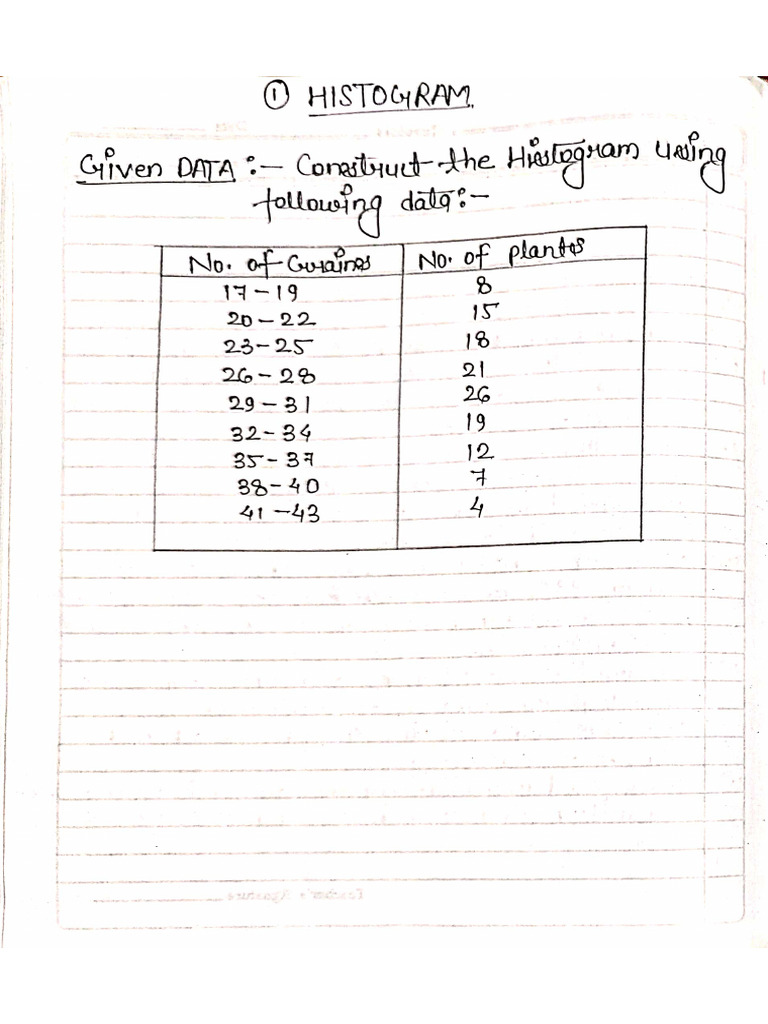 ① HISTOGRAM.
Given DATA :- Construct the Histogram using
following data:-
No. of Grains No. of plants
17-19 8
20-22 15
23-25 18
26-28 21
29-31 26
32-34 19
35-37 12
38-40 7
41-43 4
Teacher's Signature